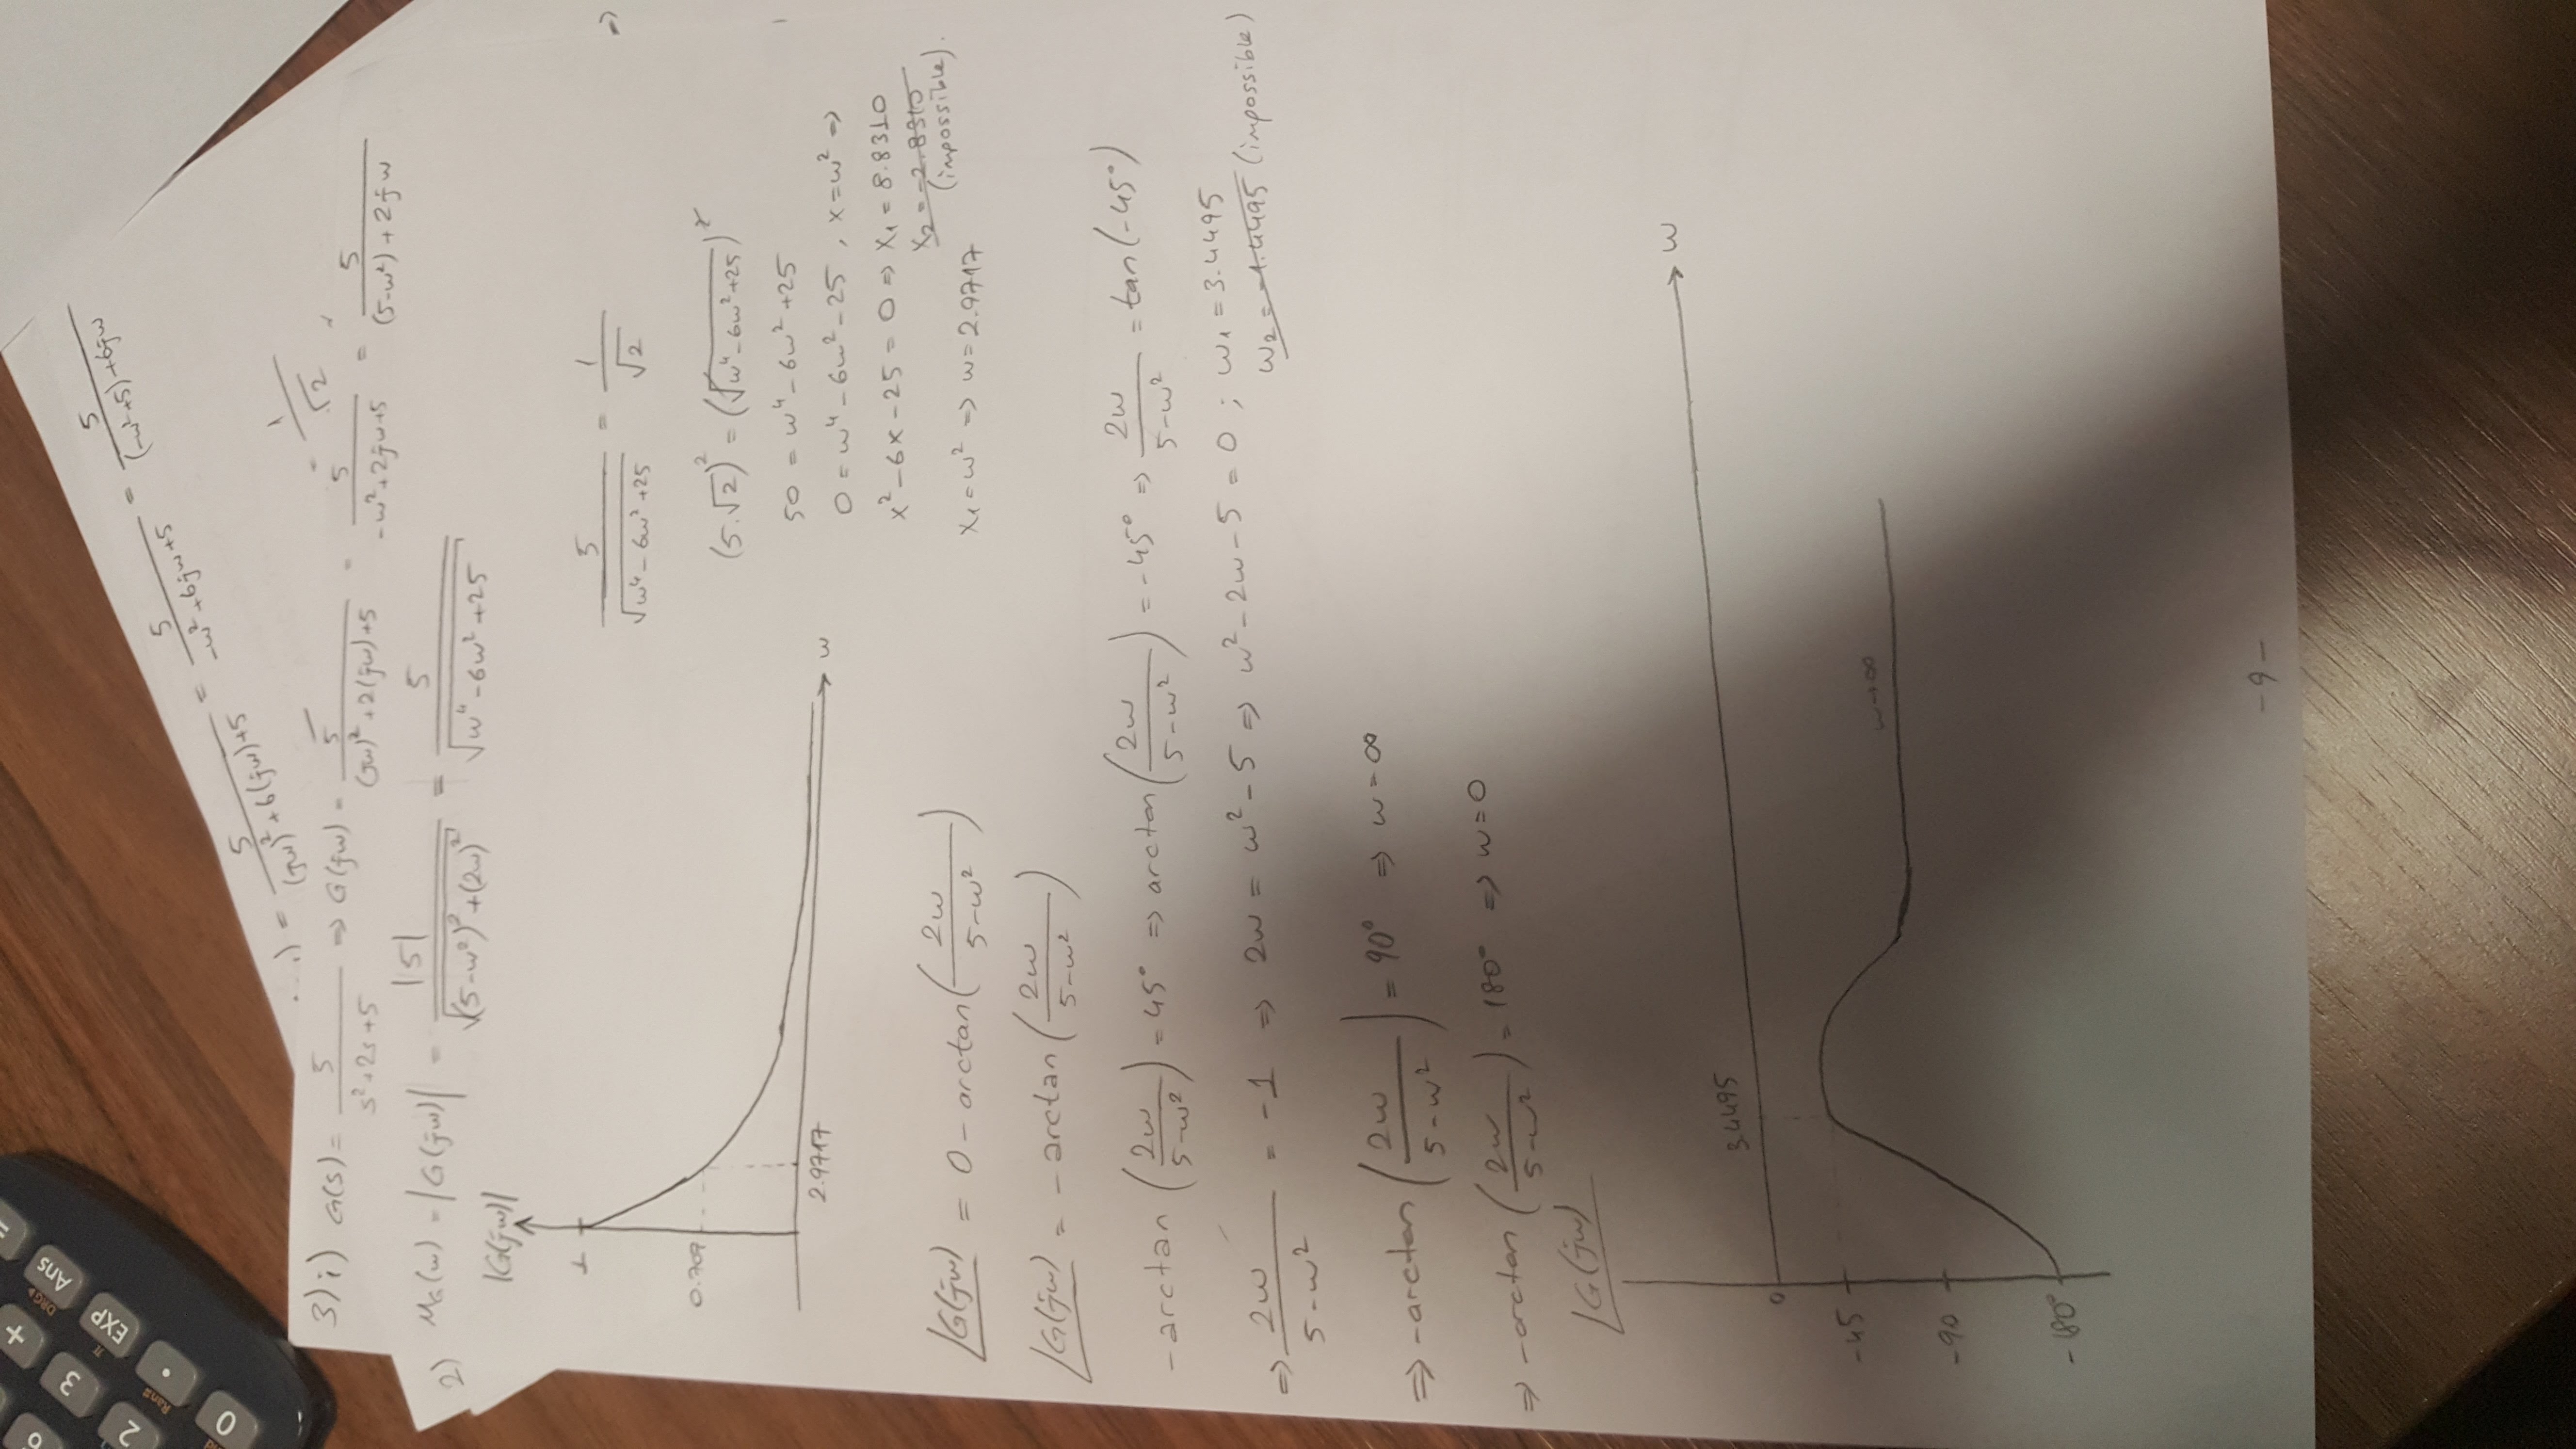 6 + =
2 3 DRG▸ Ans
Ran# π EXP
0 .
5 / ((jw)² + 6(jw) + 5) = 5 / (-w² + 6jw + 5) = 5 / ((-w² + 5) + 6jw)
= 1/√2
3) i) G(s) = 5 / (s² + 2s + 5) ⇒ G(jw) = 5 / ((jw)² + 2(jw) + 5) = 5 / (-w² + 2jw + 5) = 5 / ((5-w²) + 2jw)
2) M_G(w) = |G(jw)| = |5| / √((5-w²)² + (2w)²) = 5 / √(w⁴ - 6w² + 25)
|G(jw)|
1
0.707
2.9717
w
5 / √(w⁴ - 6w² + 25) = 1/√2 ⇒
(5.√2)² = (√(w⁴ - 6w² + 25))²
50 = w⁴ - 6w² + 25
0 = w⁴ - 6w² - 25 , x = w² ⇒
x² - 6x - 25 = 0 ⇒ x₁ = 8.8310
x₂ = -2.8310
(impossible).
x₁ = w² ⇒ w = 2.9717
∠G(jw) = 0 - arctan(2w / (5-w²))
∠G(jw) = -arctan(2w / (5-w²))
-arctan(2w / (5-w²)) = 45° ⇒ arctan(2w / (5-w²)) = -45° ⇒ 2w / (5-w²) = tan(-45°)
⇒ 2w / (5-w²) = -1 ⇒ 2w = w² - 5 ⇒ w² - 2w - 5 = 0 ; w₁ = 3.4495
w₂ = -1.4495 (impossible)
⇒ -arctan(2w / (5-w²)) = 90° ⇒ w = ∞
⇒ -arctan(2w / (5-w²)) = 180° ⇒ w = 0
∠G(jw)
w
3.4495
0
-45
w→∞
-90
-180°
-9-